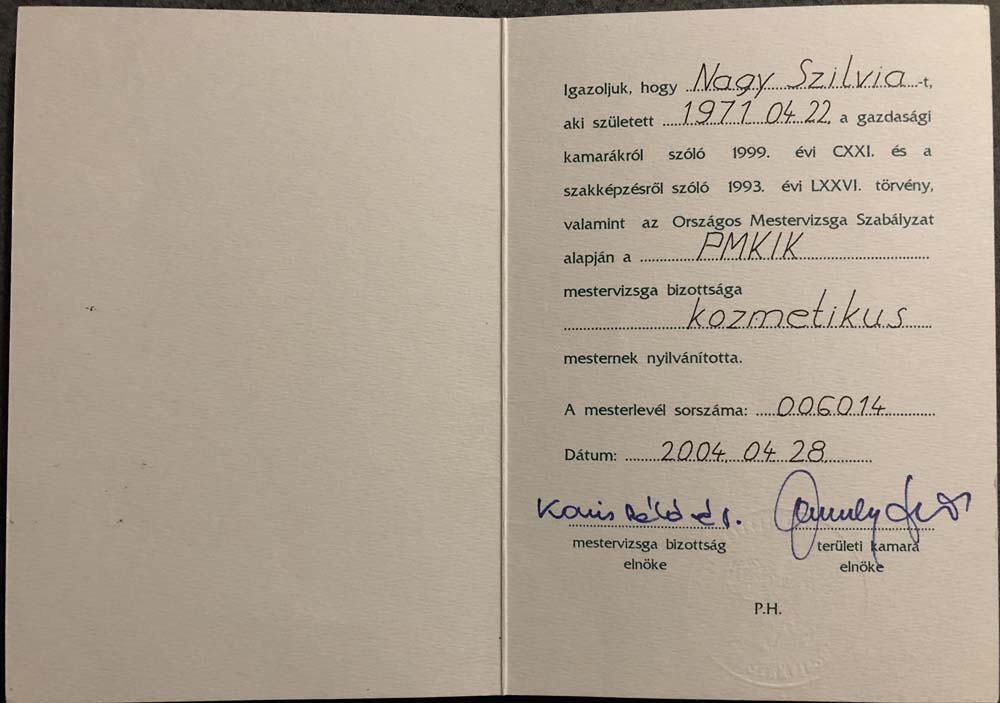 Igazoljuk, hogy Nagy Szilvia -t,
aki született 1971 04 22, a gazdasági
kamarákról szóló 1999. évi CXXI. és a
szakképzésről szóló 1993. évi LXXVI. törvény,
valamint az Országos Mestervizsga Szabályzat
alapján a PMKIK
mestervizsga bizottsága
kozmetikus
mesternek nyilvánította.
A mesterlevél sorszáma: 006014
Dátum: 2004. 04 28
mestervizsga bizottság területi kamara
elnöke elnöke
P.H.